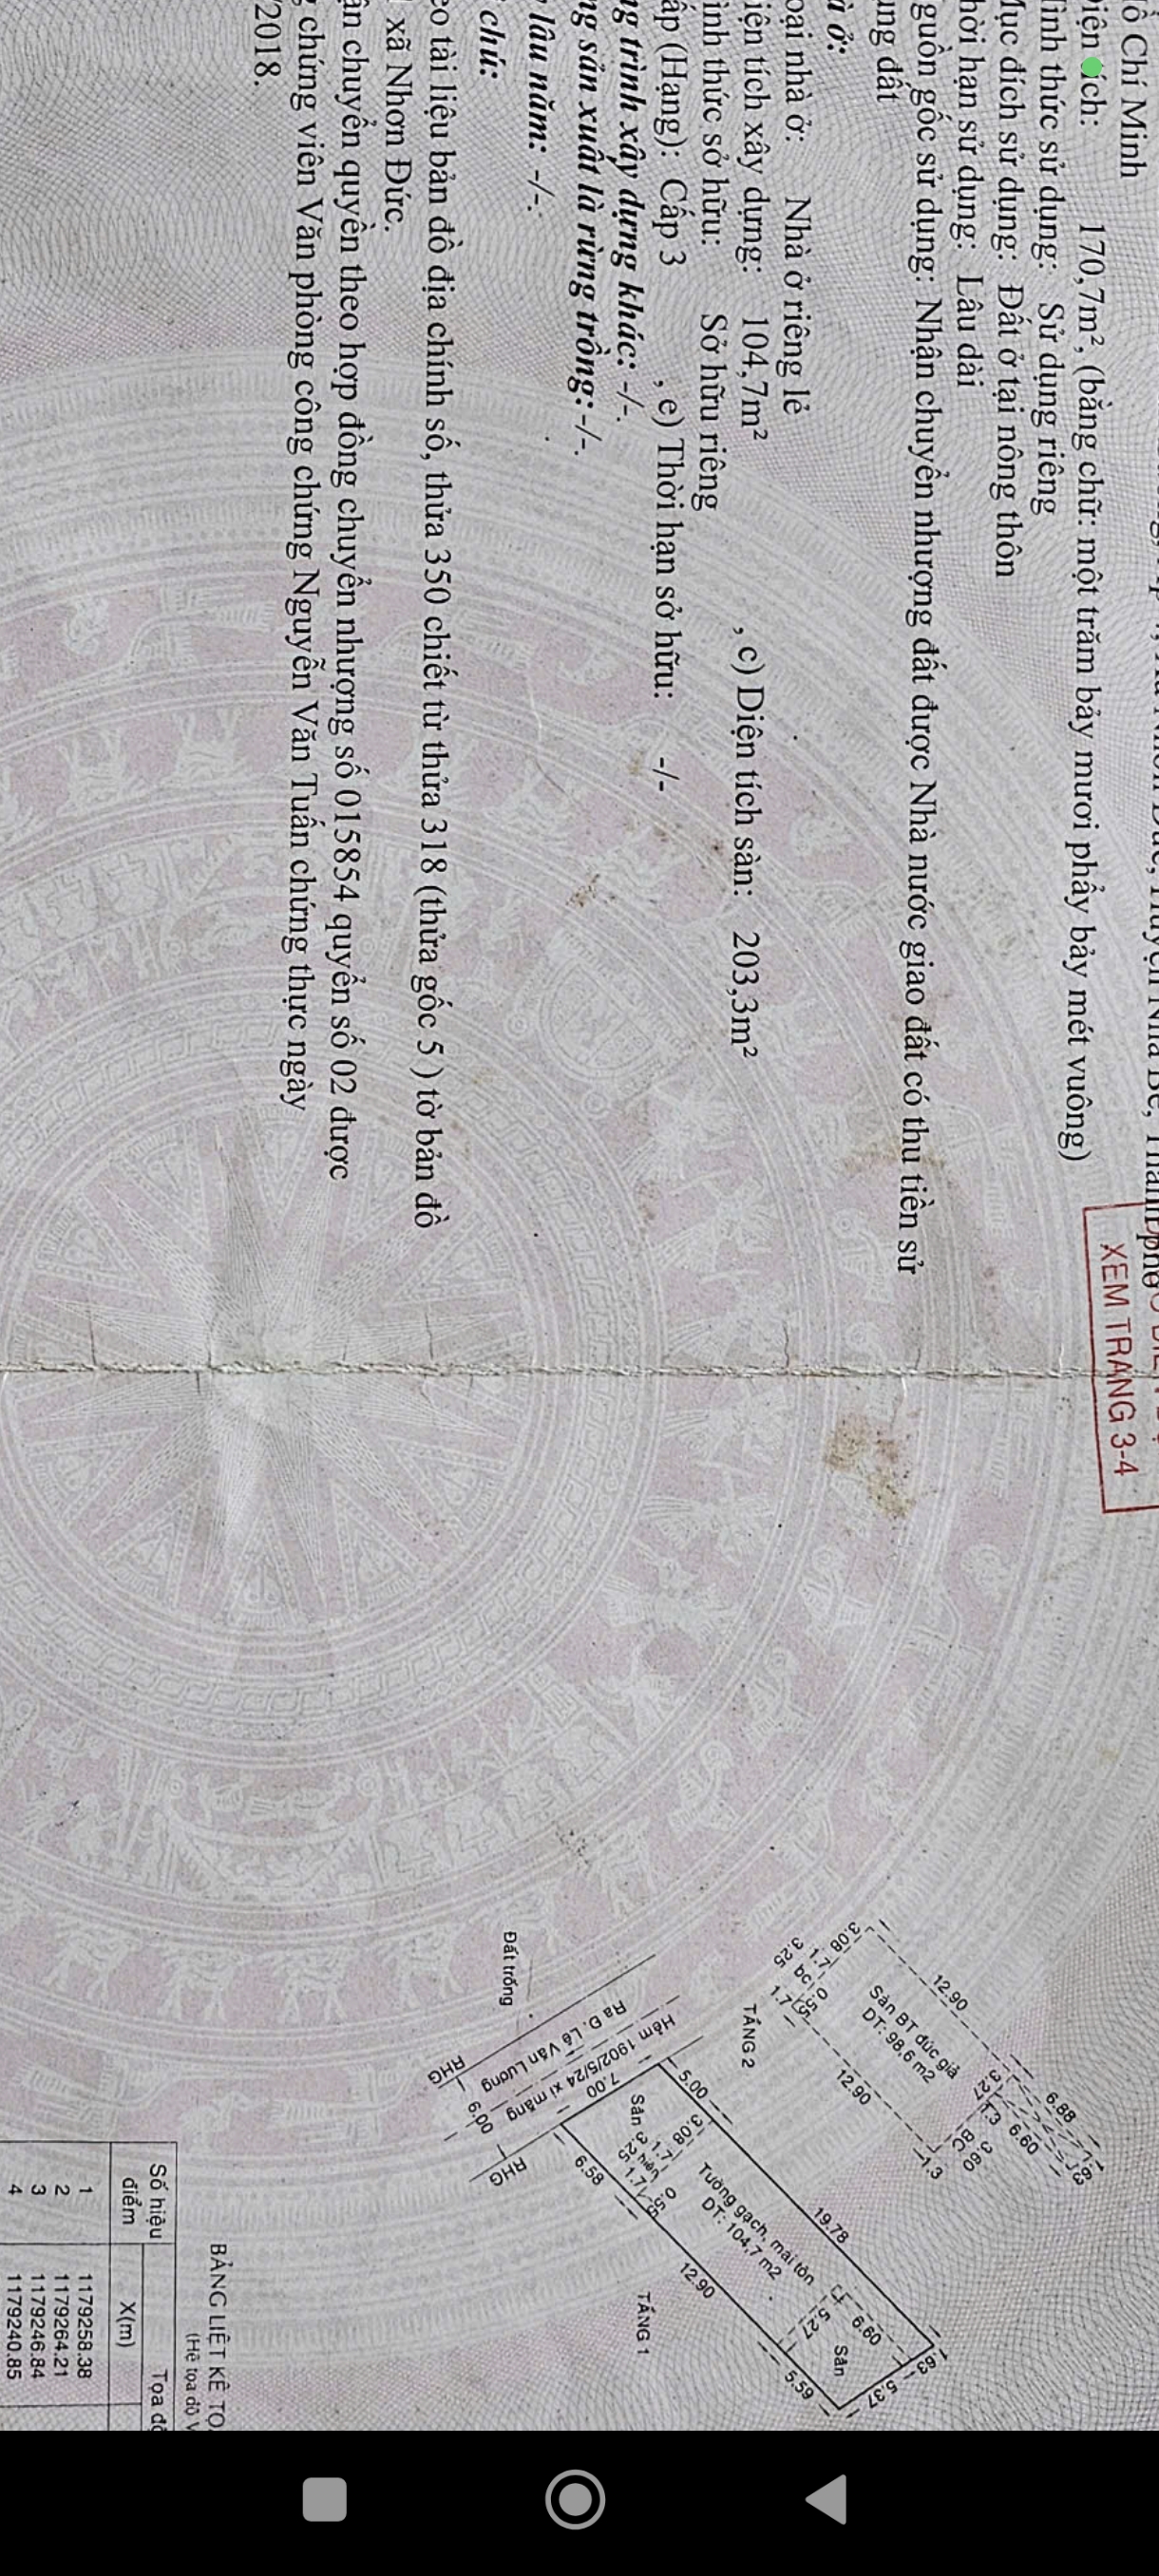 ồ Chí Minh
170,7m², (bằng chữ: một trăm bảy mươi phẩy bảy mét vuông)
thức sử dụng: Sử dụng riêng
đích sử dụng: Đất ở tại nông thôn
hời hạn sử dụng: Lâu dài
guồn gốc sử dụng: Nhận chuyển nhượng đất được Nhà nước giao đất có thu tiền sử
ụng đất
à ở:
oại nhà ở: Nhà ở riêng lẻ
iện tích xây dựng: 104,7m² , c) Diện tích sàn: 203,3m²
ình thức sở hữu: Sở hữu riêng
ấp (Hạng): Cấp 3 , e) Thời hạn sở hữu: -/-
ng trình xây dựng khác: -/-.
ng sản xuất là rừng trồng: -/-.
lâu năm: -/-.
chú:
eo tài liệu bản đồ địa chính số, thửa 350 chiết từ thửa 318 (thửa gốc 5 ) tờ bản đồ
xã Nhơn Đức.
ận chuyển quyền theo hợp đồng chuyển nhượng số 015854 quyển số 02 được
chứng viên Văn phòng công chứng Nguyễn Văn Tuấn chứng thực ngày
/2018.
XEM TRANG 3-4
12.90
6.88
1.63
3.08
Sàn BT đúc giả
DT: 98,6 m2
3.27
6.60
1.7
1.3
bc
BC
3.60
3.25
0.55
1.7
12.90
1.3
TẦNG 2
Đất trống
RHG
Ra Đ. Lê Văn Lương
Hẻm 1902/5/24 xi măng
6.00
RHG
7.00
5.00
19.78
Sân
3.08
1.7
hiên
3.25
1.7
0.55
Tường gạch, mái tôn
DT: 104,7 m2
6.60
5.27
Sân
.63
5.37
6.58
12.90
5.59
TẦNG 1
BẢNG LIỆT KÊ TỌ
(Hệ tọa độ V
Số hiệu
điểm
Tọa độ
X(m)
1 1179258.38
2 1179264.21
3 1179246.84
4 1179240.85